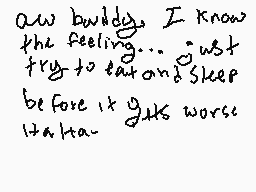 aw buddy, I know
the feeling... just
try to eat and sleep
before it gets worse
Haha